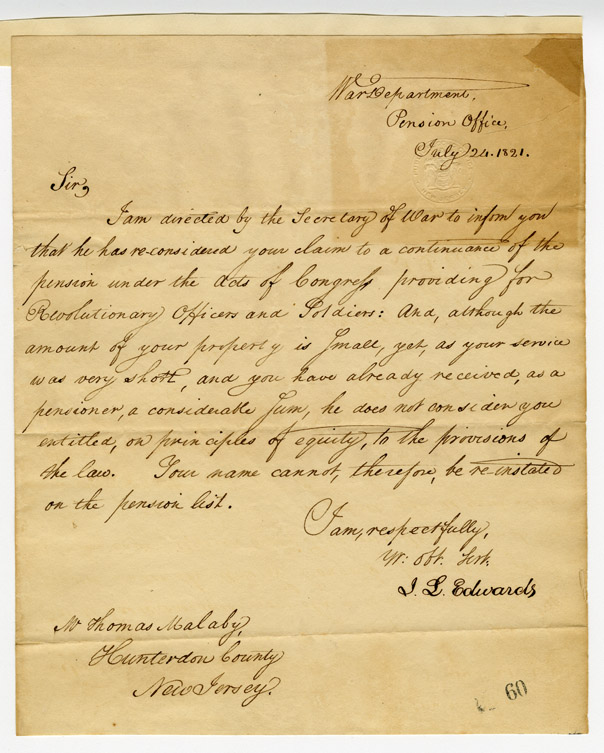 War Department,
Pension Office,
July 24. 1821.
Sir,
I am directed by the Secretary of War to inform you
that he has re-considered your claim to a continuance of the
pension under the Acts of Congress providing for
Revolutionary Officers and Soldiers: And, although the
amount of your property is small, yet, as your service
was very short, and you have already received, as a
pensioner, a considerable sum, he does not consider you
entitled, on principles of equity, to the provisions of
the law. Your name cannot, therefore, be re-instated
on the pension list.
I am, respectfully,
Yr. obt. Servt.
J. L. Edwards
Mr Thomas Malaby,
Hunterdon County
New Jersey.
60